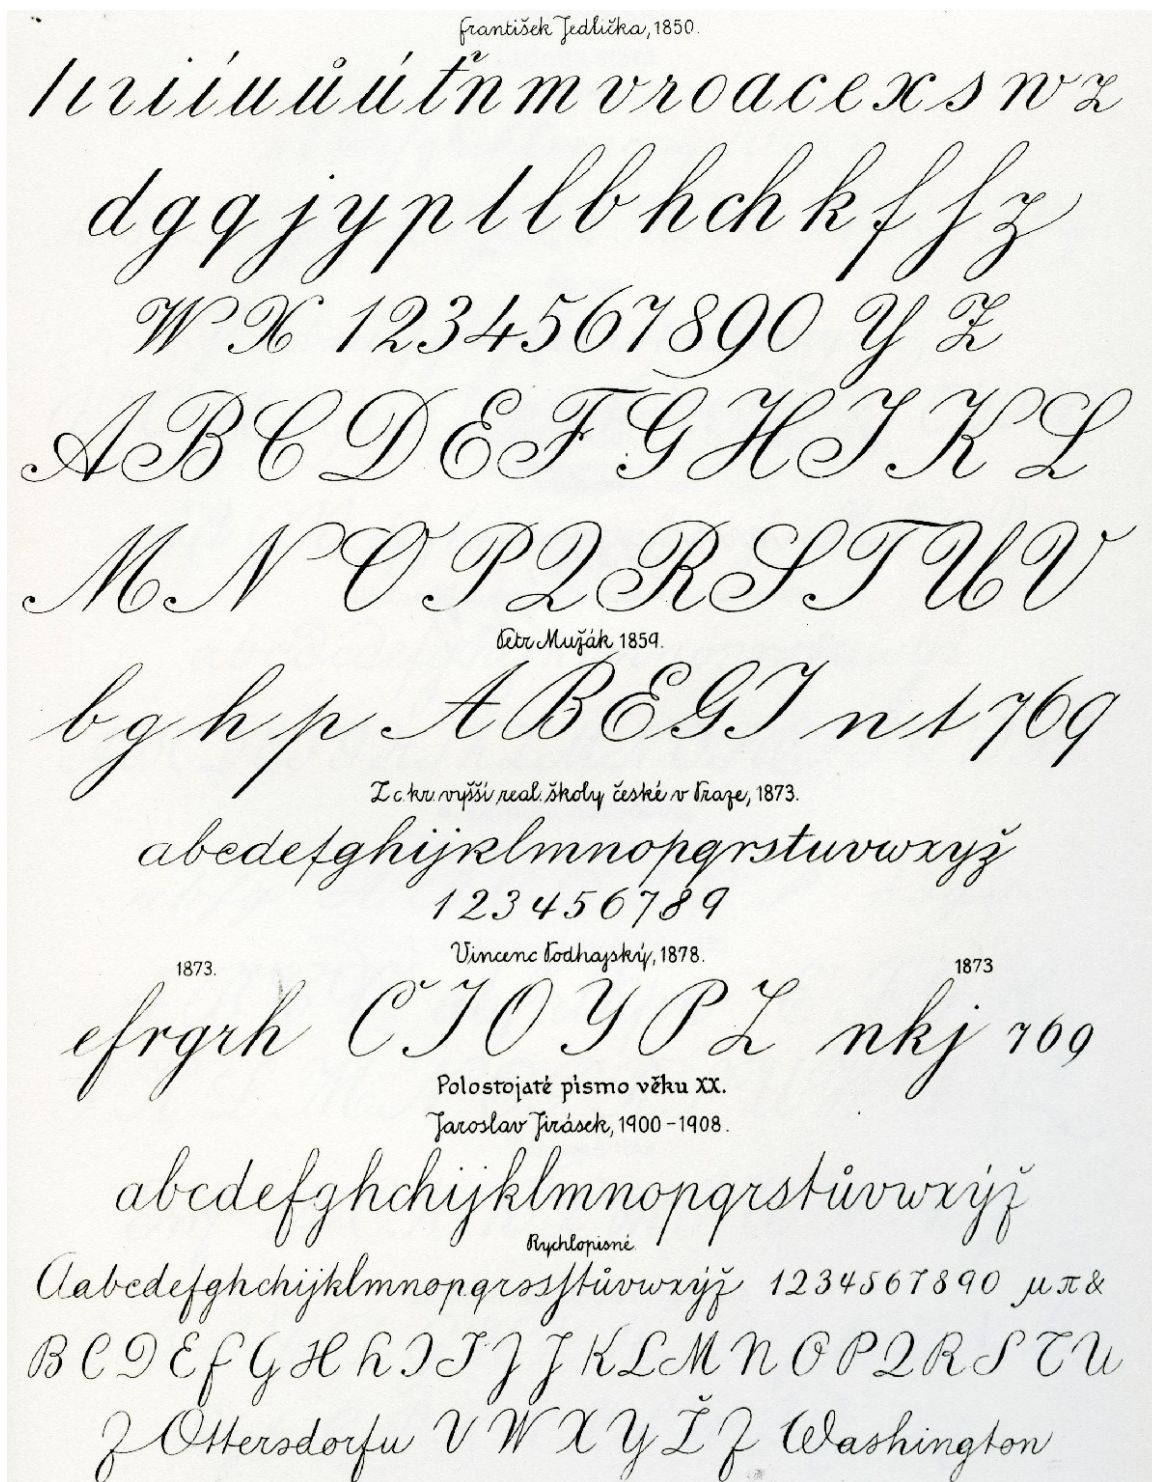 František Jedlička, 1850.
l ı r i í u ů ú ť n m v r o a c e x s w z
d g q j y p t l b h ch k f ſ z
W X 1 2 3 4 5 6 7 8 9 0 Y Z
A B C D E F G H I K L
M N O P Q R S T U V
Petr Mužák 1859.
b g h p A B E G I n t 7 6 9
Z c. kr. vyšší real. školy české v Praze, 1873.
abcdefghijklmnopqrstuvwxyž
1 2 3 4 5 6 7 8 9
Vincenc Podhajský, 1878.
1873. 1873
efrgrh C I O Y P Z nkj 769
Polostojaté písmo věku XX.
Jaroslav Jirásek, 1900-1908.
abcdefghchijklmnopqrstůvwxýž
Rychlopisné
Aabcdefghchijklmnopqrsſtůvwxýž 1234567890 µ π &
B C D E F G H Ch I I J J K L M N O P Q R S T U
Z Ottersdorfu V W X Y Ž Z Washington